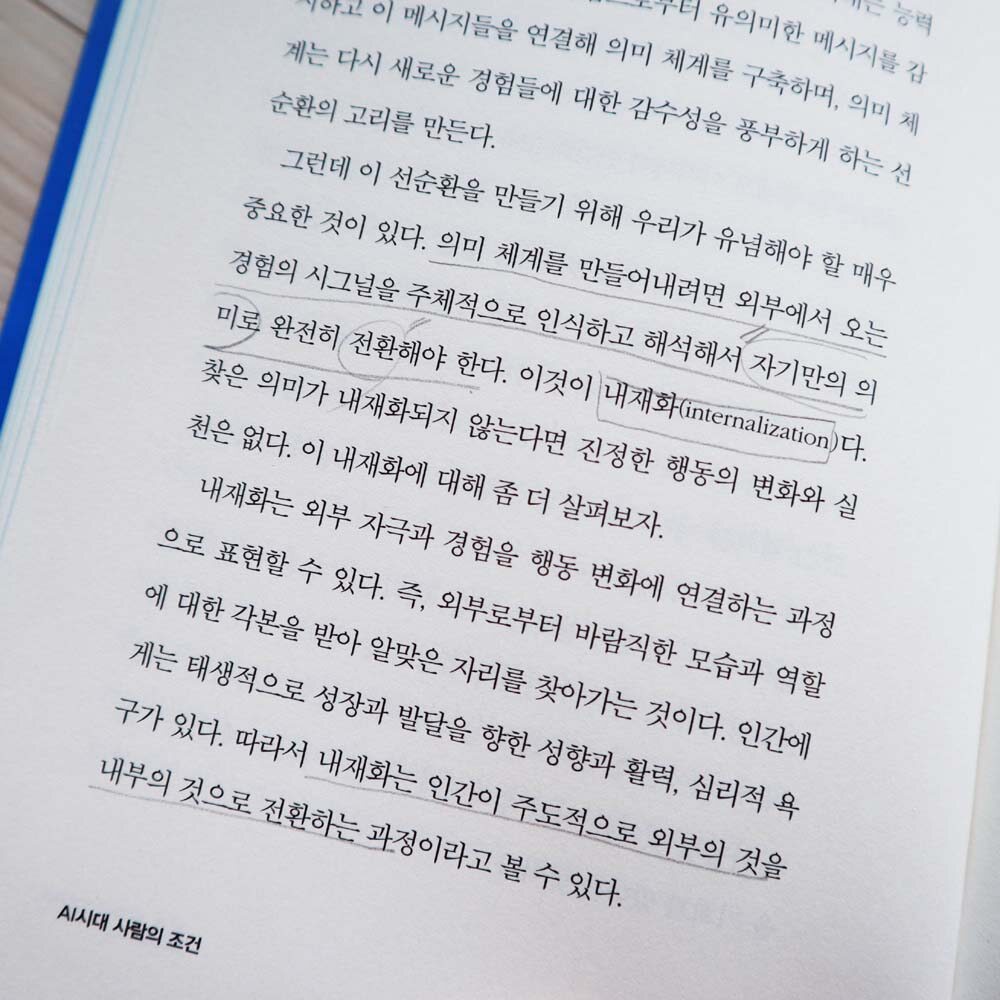 부터 유의미한 메시지를 감
하고 이 메시지들을 연결해 의미 체계를 구축하며, 의미 체
계는 다시 새로운 경험들에 대한 감수성을 풍부하게 하는 선
순환의 고리를 만든다.
그런데 이 선순환을 만들기 위해 우리가 유념해야 할 매우
중요한 것이 있다. 의미 체계를 만들어내려면 외부에서 오는
경험의 시그널을 주체적으로 인식하고 해석해서 자기만의 의
미로 완전히 전환해야 한다. 이것이 내재화(internalization)다.
찾은 의미가 내재화되지 않는다면 진정한 행동의 변화와 실
천은 없다. 이 내재화에 대해 좀 더 살펴보자.
내재화는 외부 자극과 경험을 행동 변화에 연결하는 과정
으로 표현할 수 있다. 즉, 외부로부터 바람직한 모습과 역할
에 대한 각본을 받아 알맞은 자리를 찾아가는 것이다. 인간에
게는 태생적으로 성장과 발달을 향한 성향과 활력, 심리적 욕
구가 있다. 따라서 내재화는 인간이 주도적으로 외부의 것을
내부의 것으로 전환하는 과정이라고 볼 수 있다.
AI시대 사람의 조건